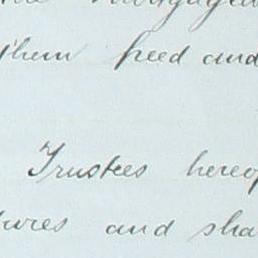 them freed and
Trustees hereof
tures and sha